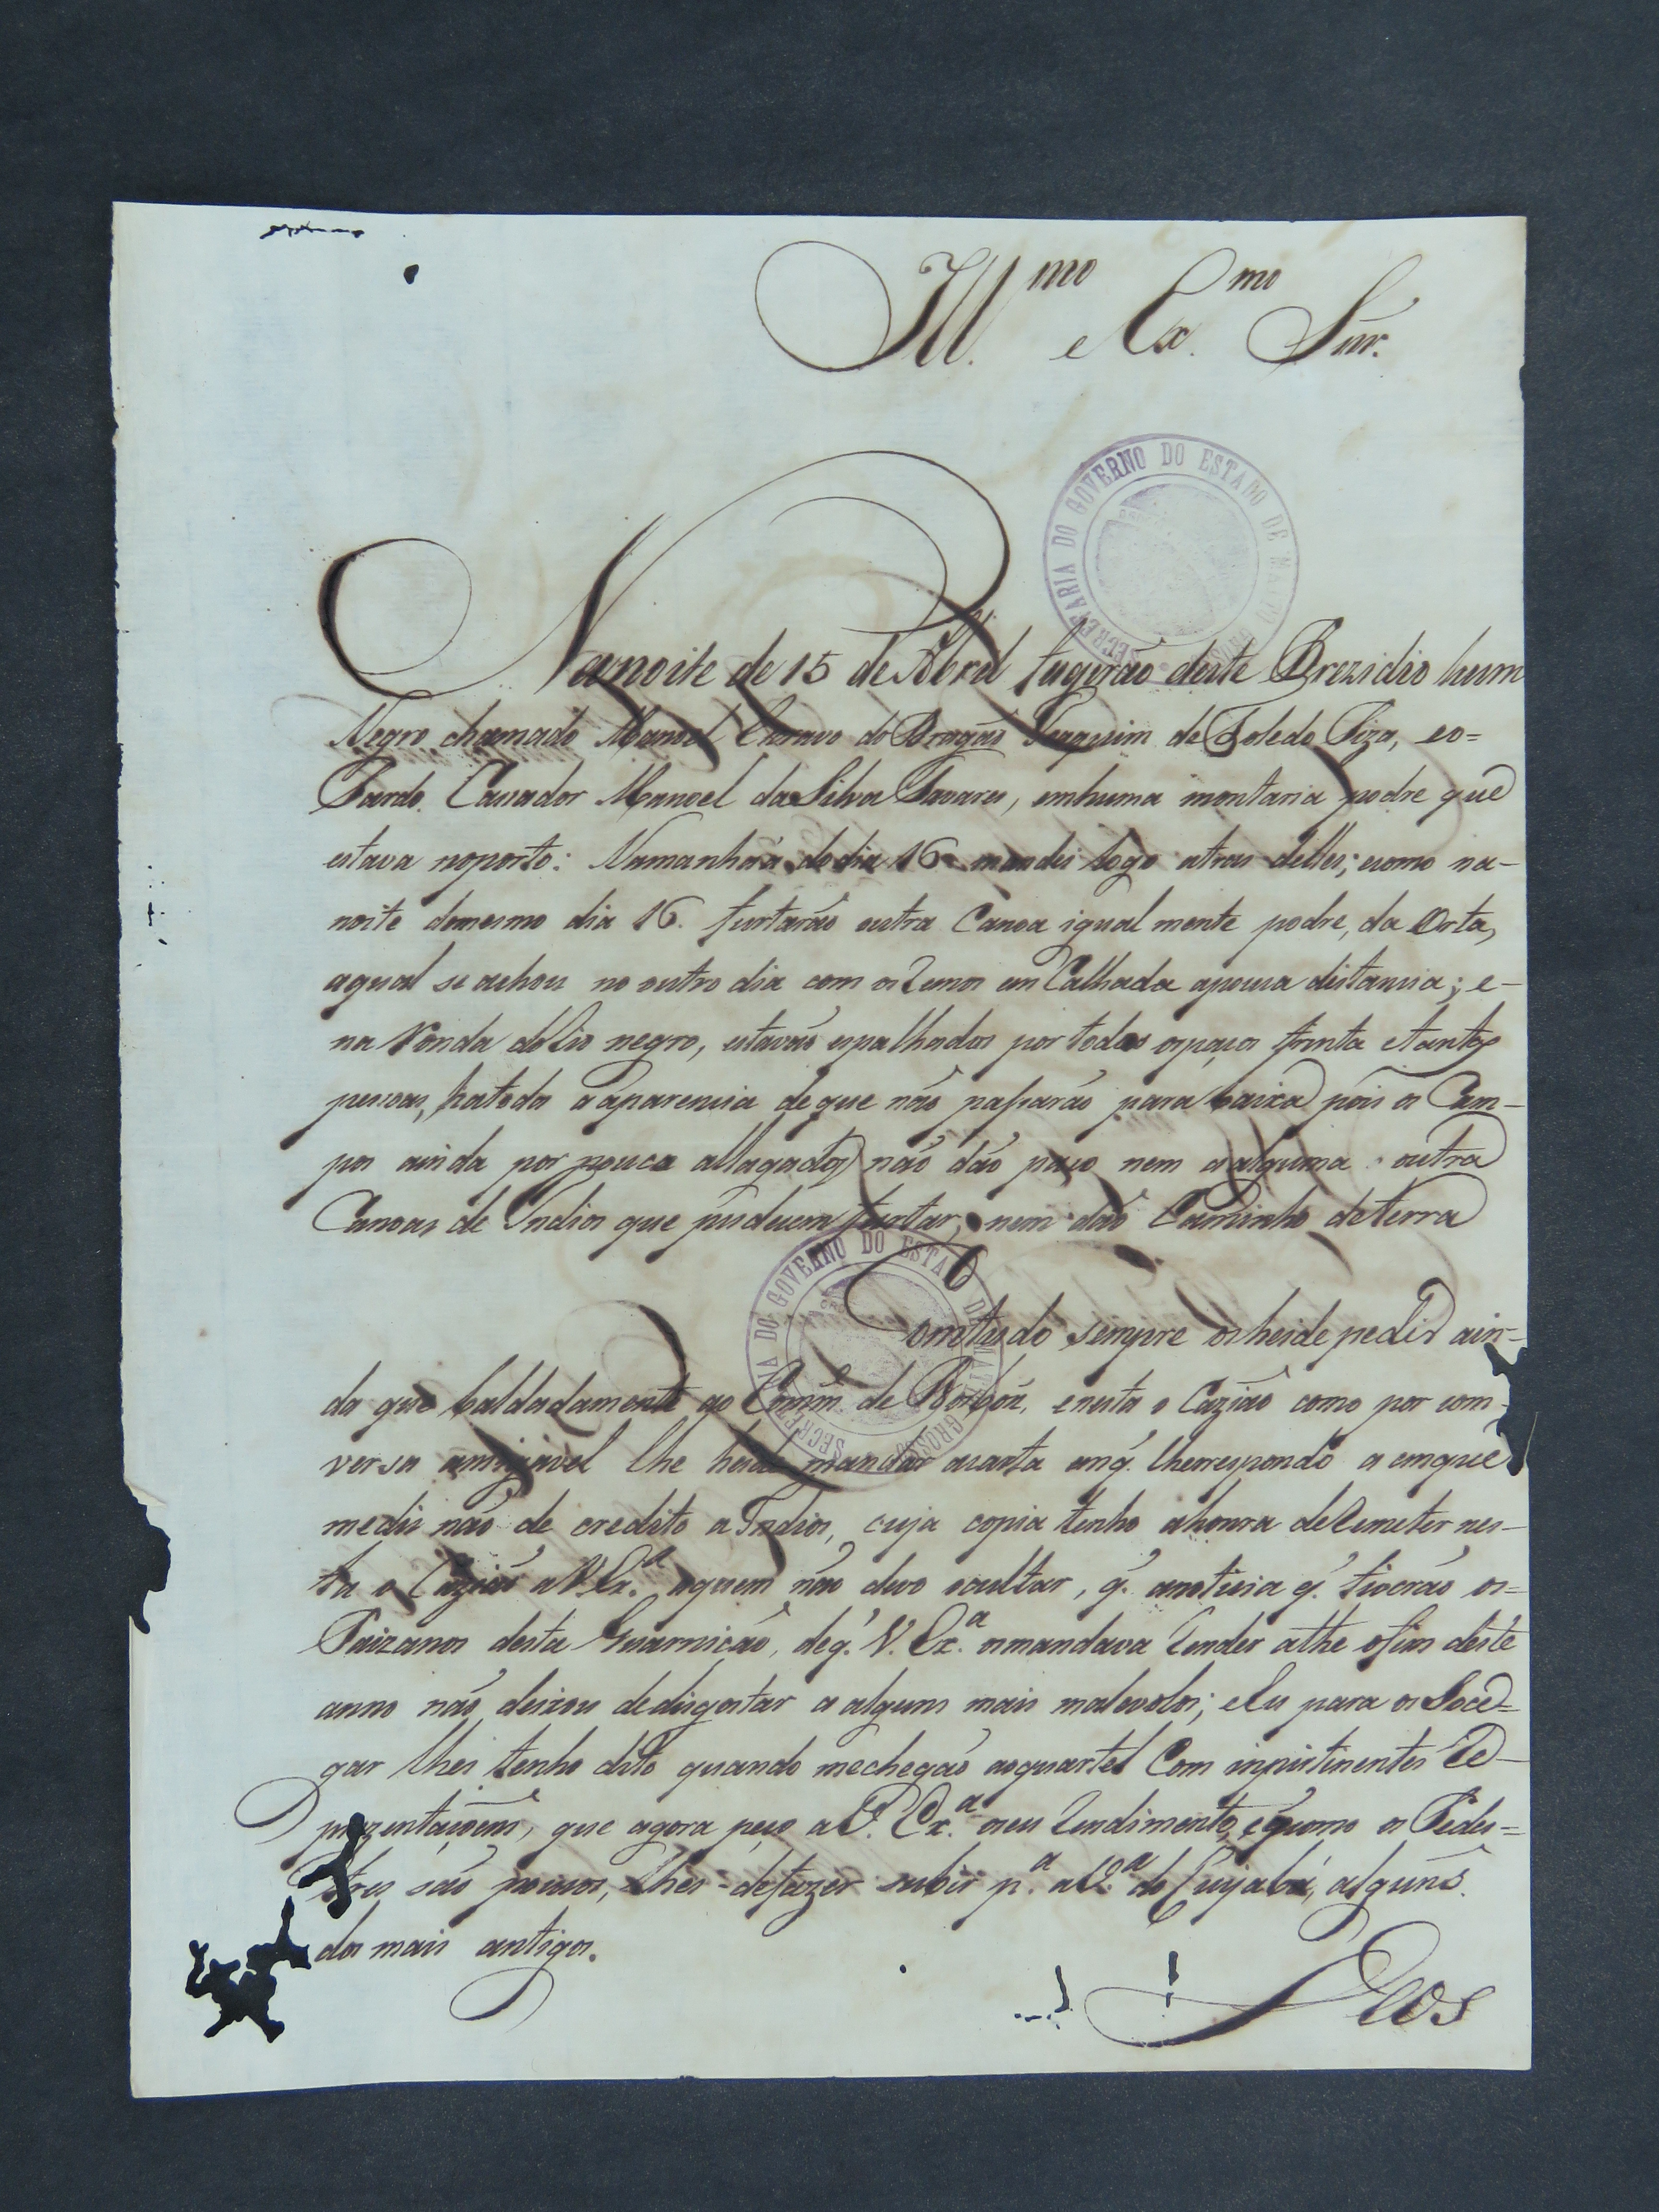 Ill.mo e Ex.mo Snr.
SECRETARIA DO GOVERNO DO ESTADO DE MATTO GROSSO
Na noite de 15 de Abril fugirão deste Prezidio hum
Negro chamado Manoel Escravo do Dragão Joaquim de Toledo Piza, eo=
Pardo Cassador Manoel da Silva Tavares, emhuma montaria podre que
estava noporto: Namanhãa do dia 16 mandei logo atras delles; ecomo na-
noite domesmo dia 16. furtarão outra Canoa igual mente podre, da Orta,
aqual se achou no outro dia com os Remos em Calhada apouca distancia; e-
na Ronda do Rio negro, estavão espalhados por todos ospaços trinta etantas
pessoas, ha toda aaparencia de que não passarão para baixo pois os Cam-
pos ainda por pouca allagados não dão paço nem a alguma outra
Canoas de Indios que pudecem furtar, nem dão Caminho deterra
Comtudo sempre os heide pedir ain-
da que baldadamente ao Comm.e de Borbon, enesta o Cazião como por com-
versa amigavel lhe heide mandar acarta emq. lherrespondo a emque
mediz não de credito a Indios, cuja copia tenho ahonra deRemeter nes-
ta o Cazião a V. Ex.a aquem não devo ocultar, q. anoticia q. tiverão os=
Paizanos desta Guarnicão, deq. V. Ex.a osmandava Render athe ofim deste
anno não deixou dedisgostar a alguns mais malevolos; eEu para os Soce=
gar lhes tenho dito quando mechegão aoquartel Com inpirtinentes Re-
prezentaçoens, que agora peço a V. Ex.a oseu Rendimento, ecomo os Pedes=
tres são poucos, lhes defazer subir p.a a V.a do Cuyabá, alguns
dos mais antigos.
Deos
SECRETARIA DO GOVERNO DO ESTADO DE MATTO GROSSO